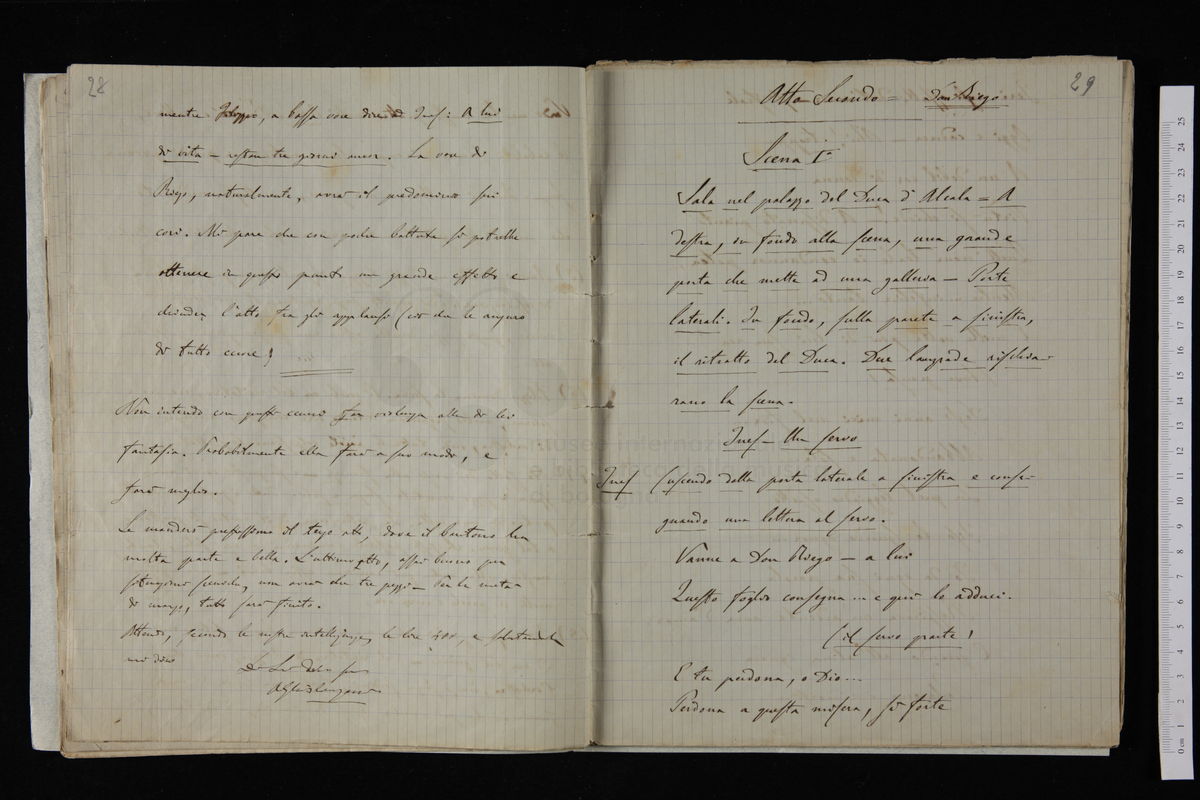 28
mentre Filippo, a bassa voce dice ad Ines: A lui
di vita — restan tre giorni ancor. La voce di
Riego, naturalmente, avrà il predominio sui
cori. Mi pare che con poche battute si potrebbe
ottenere in questo punto un grande effetto e
chiuder l'atto tra gli applausi (ciò che le auguro
di tutto cuore)
Non intendo con questi cenni far violenza alla di lei
fantasia. Probabilmente ella farà a suo modo, e
farà meglio.
Le manderò prestissimo il terzo atto, dove il baritono ha
molta parte e bella. L'ultimo atto, assai buono per
situazioni sceniche, non avrà che tre pezzi — Per la metà
di marzo, tutto sarà finito.
Attendo, secondo le nostre intelligenze, le lire 400, e salutandola
mi dico
Di Lei
A Ghislanzoni
29
Atto Secondo = Don Riego
Scena Iª
Sala nel palazzo del Duca d'Alcala = A
destra, in fondo alla scena, una grande
porta che mette ad una galleria — Porte
laterali. In fondo, sulla parete a sinistra,
il ritratto del Duca. Due lampade rischia-
rano la scena.
Ines — Un servo
Ines (uscendo dalla porta laterale a sinistra e conse-
gnando una lettera al servo.
Vanne a Don Riego — a lui
Questo foglio consegna ... e quì lo adduci.
(il servo parte)
E tu perdona, o Dio ...
Perdona a questa misera, se forte